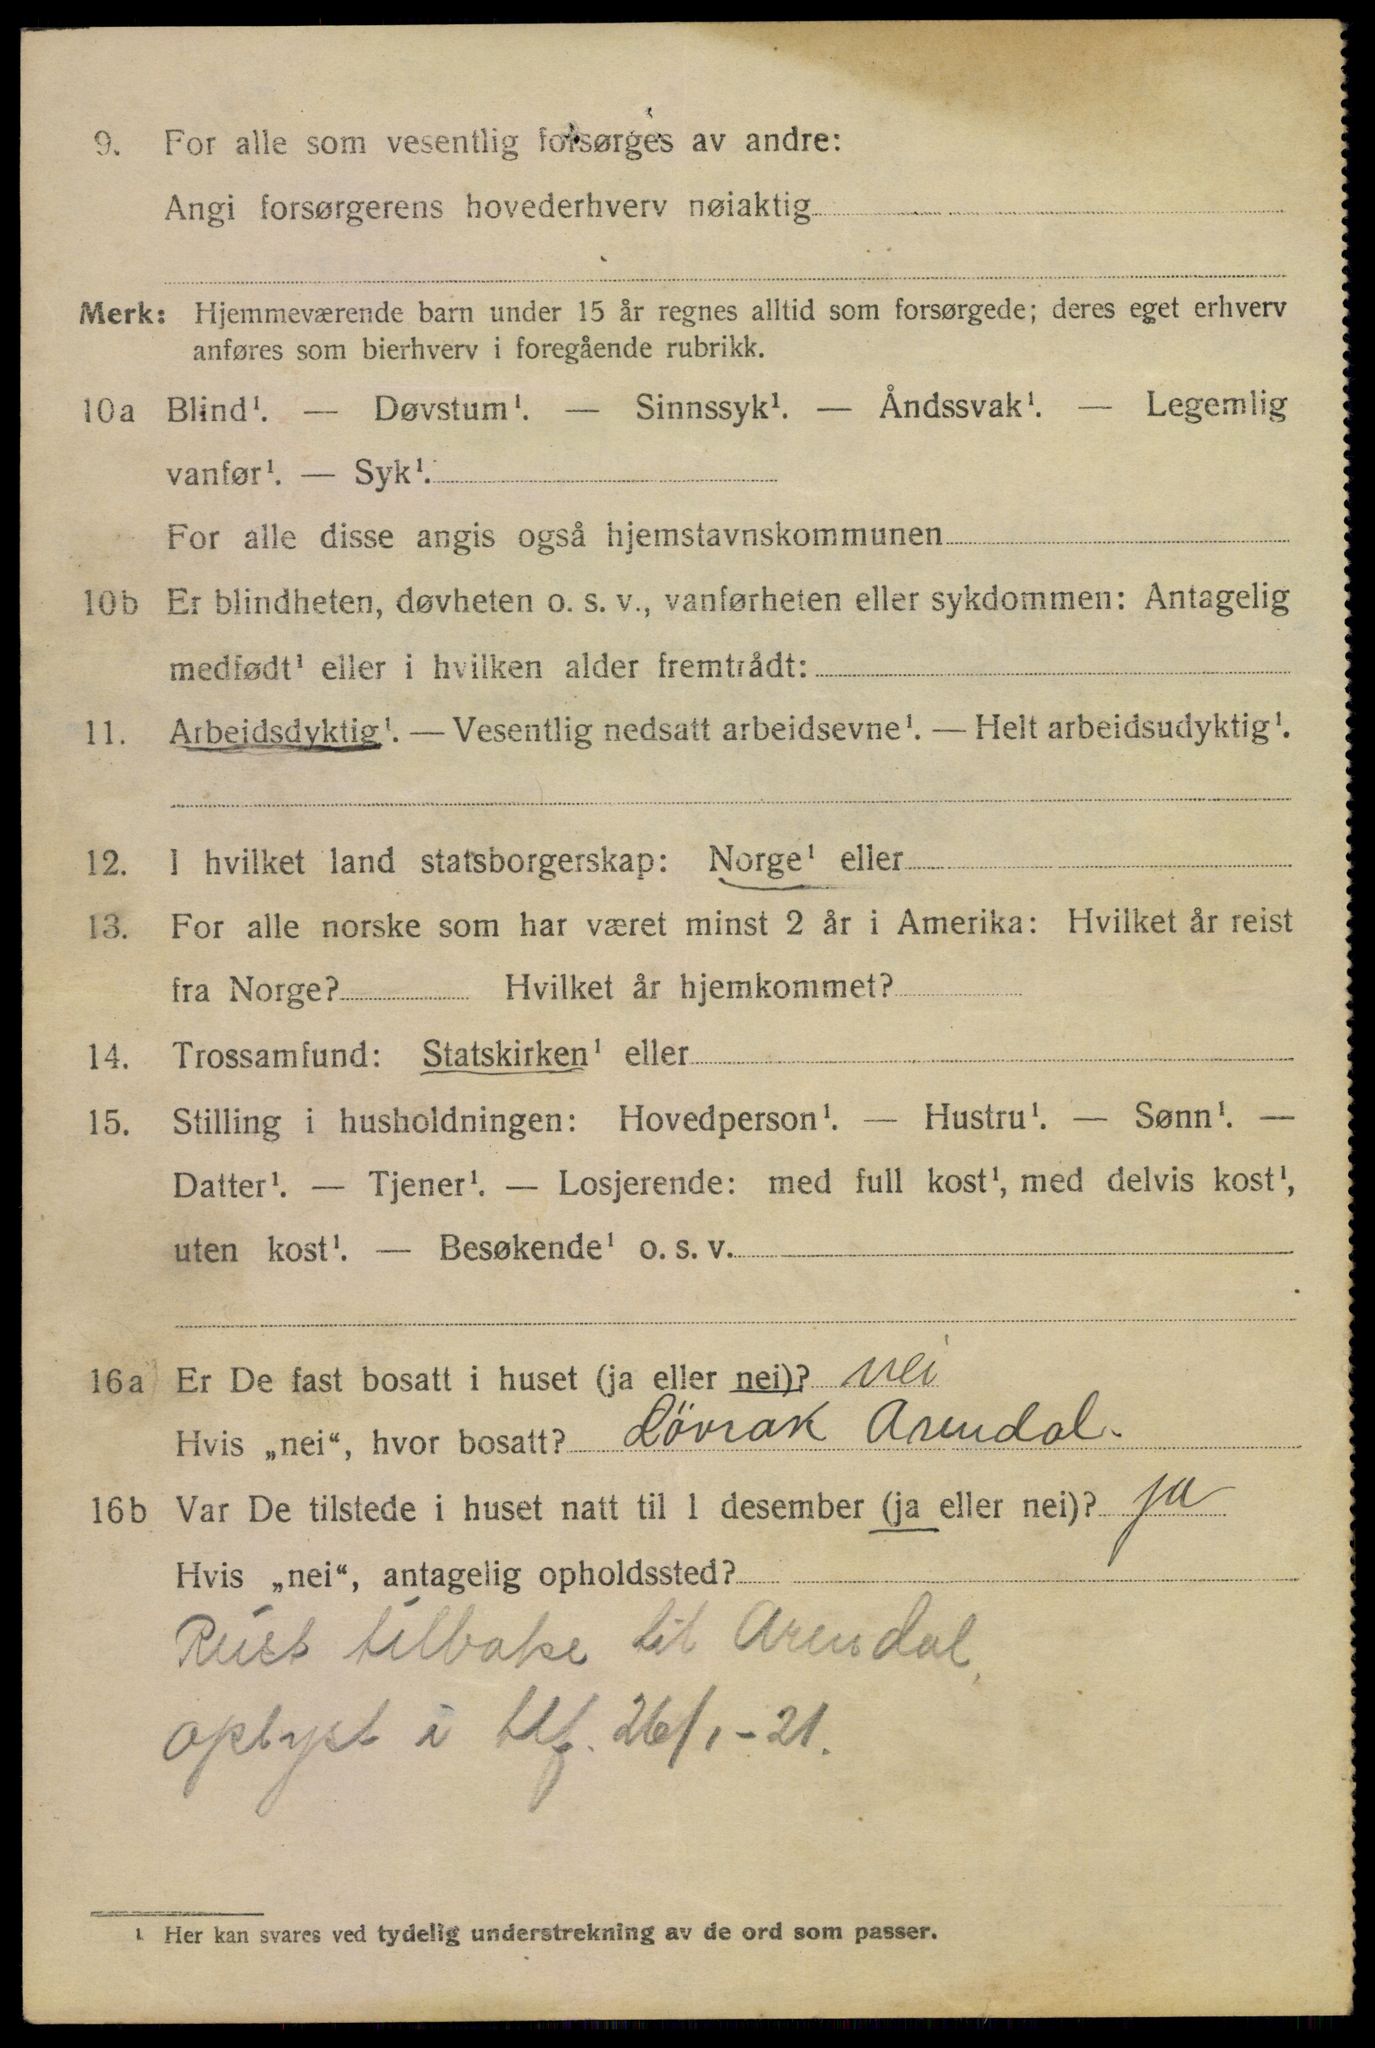 9. For alle som vesentlig forsørges av andre:
Angi forsørgerens hovederhverv nøiaktig
Merk: Hjemmeværende barn under 15 år regnes alltid som forsørgede; deres eget erhverv
anføres som bierhverv i foregående rubrikk.
10a Blind¹. — Døvstum¹. — Sinnssyk¹. — Åndssvak¹. — Legemlig
vanfør¹. — Syk¹.
For alle disse angis også hjemstavnskommunen
10b Er blindheten, døvheten o. s. v., vanførheten eller sykdommen: Antagelig
medfødt¹ eller i hvilken alder fremtrådt:
11. Arbeidsdyktig¹. — Vesentlig nedsatt arbeidsevne¹. — Helt arbeidsudyktig¹.
12. I hvilket land statsborgerskap: Norge¹ eller
13. For alle norske som har været minst 2 år i Amerika: Hvilket år reist
fra Norge? Hvilket år hjemkommet?
14. Trossamfund: Statskirken¹ eller
15. Stilling i husholdningen: Hovedperson¹. — Hustru¹. — Sønn¹. —
Datter¹. — Tjener¹. — Losjerende: med full kost¹, med delvis kost¹,
uten kost¹. — Besøkende¹ o. s. v.
16a Er De fast bosatt i huset (ja eller nei)? nei
Hvis „nei“, hvor bosatt? Lövrak Arendal.
16b Var De tilstede i huset natt til 1 desember (ja eller nei)? ja
Hvis „nei“, antagelig opholdssted?
Reist tilbake til Arendal,
oplyst i tlf. 26/1-21.
¹ Her kan svares ved tydelig understrekning av de ord som passer.